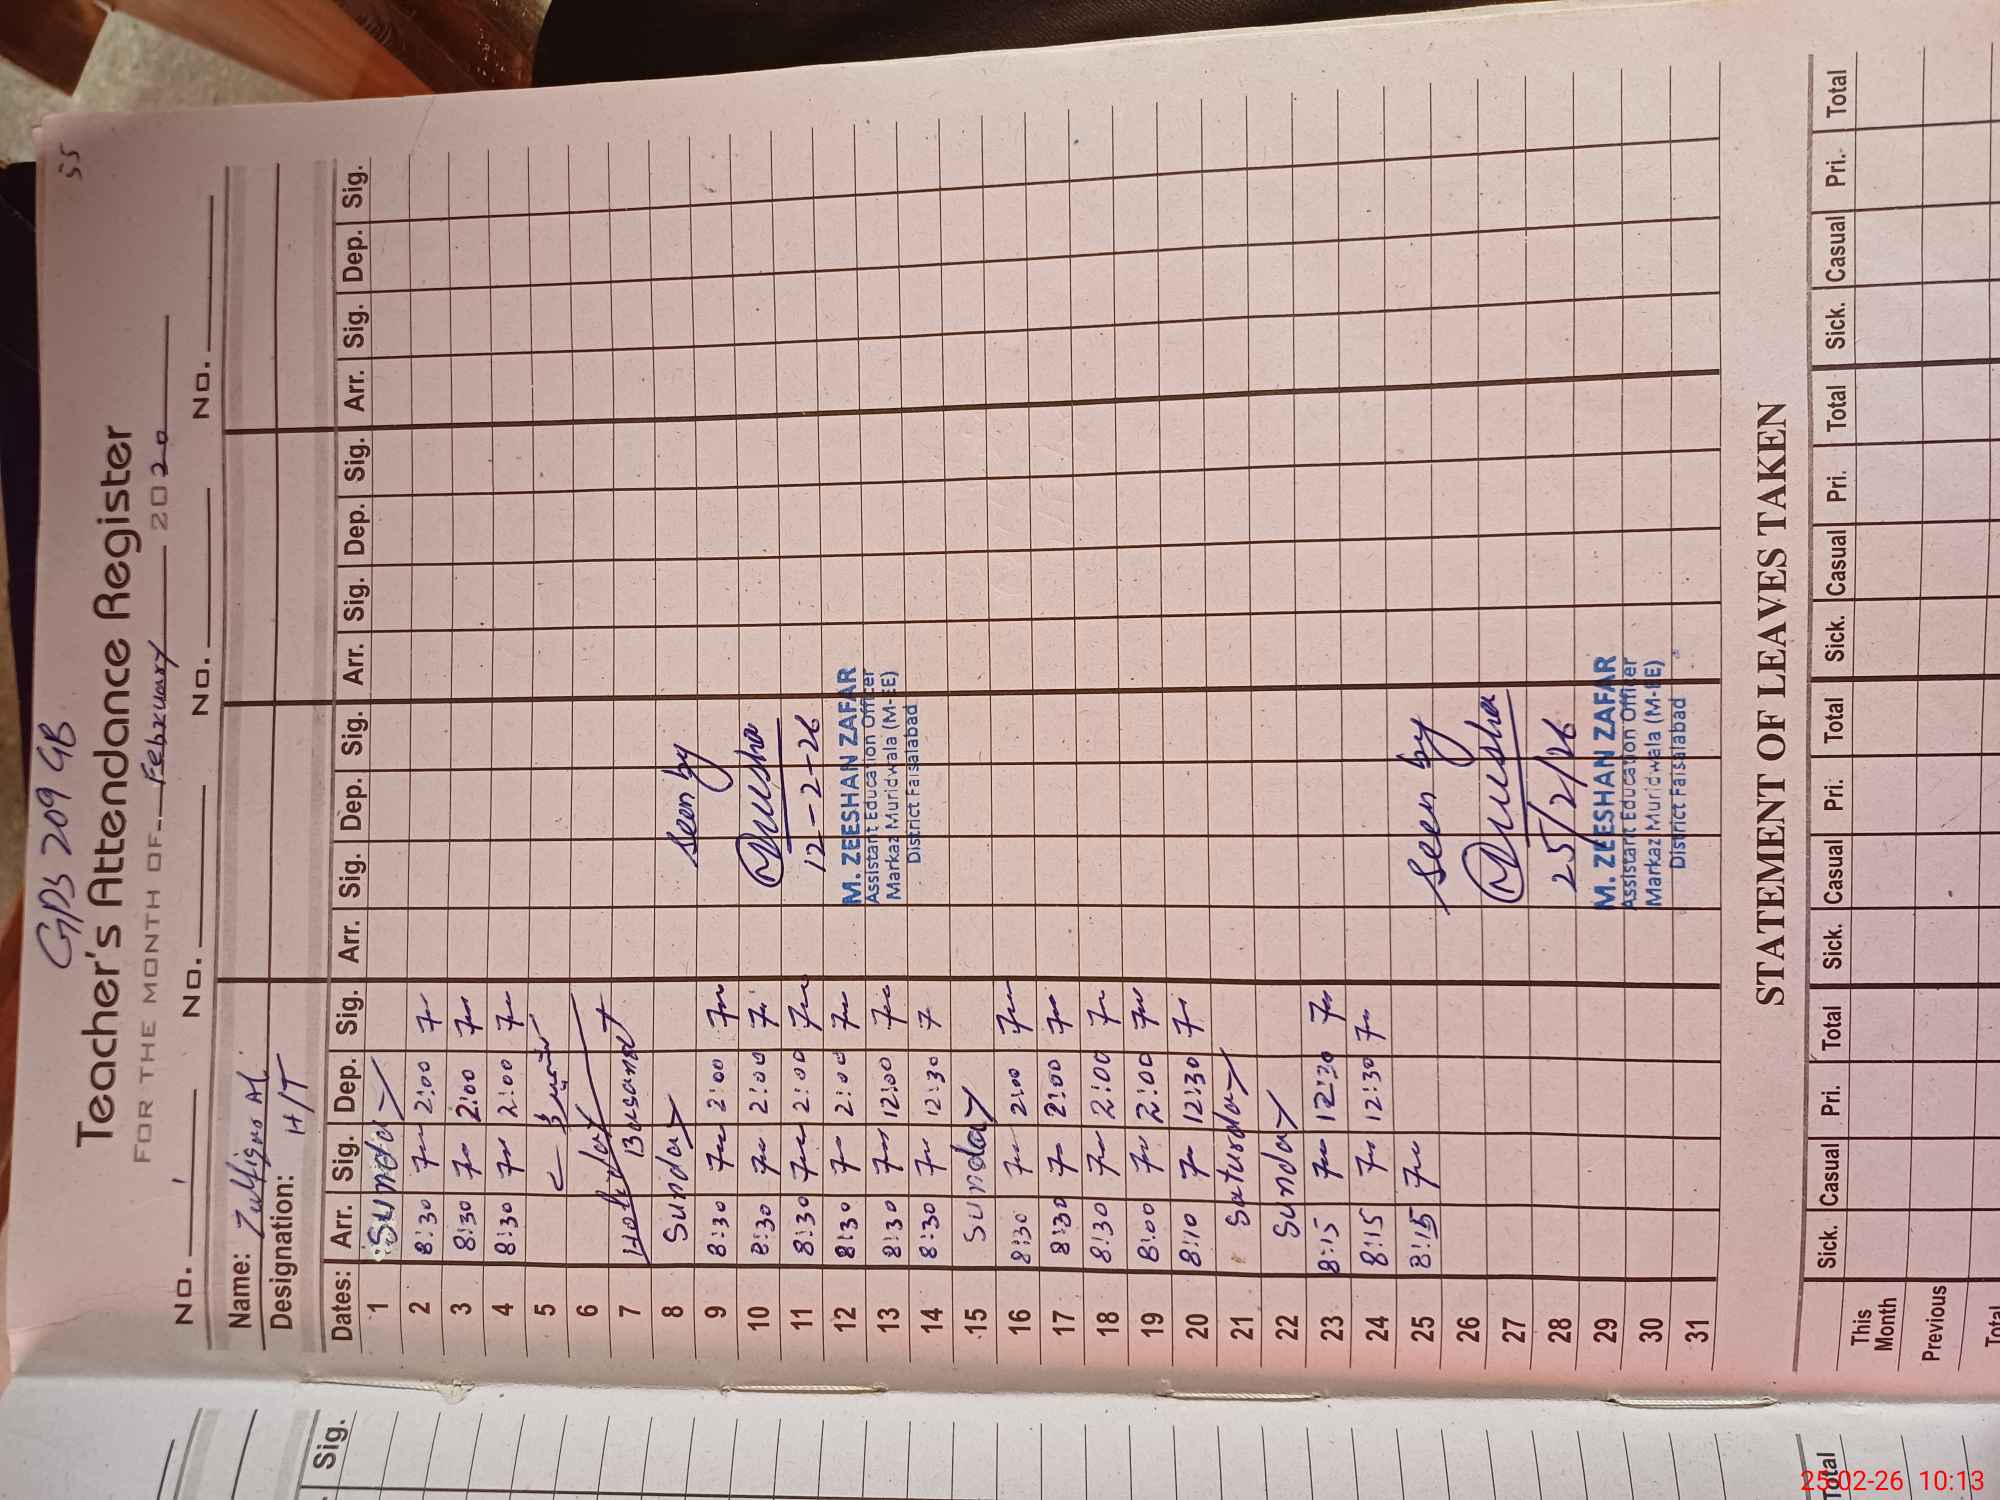 55
GPS 209 GB
Teacher's Attendance Register
FOR THE MONTH OF February 2020
No. 1 No. No. No.
Name:
Designation: H/T
Dates: Arr. Sig. Dep. Sig. Arr. Sig. Dep. Sig. Arr. Sig. Dep. Sig. Arr. Sig. Dep. Sig.
1 Sunday
2 8:30 2:00
3 8:30 2:00
4 8:30 2:00
5
6 Holiday
7 Basant
8 Sunday
9 8:30 2:00
10 8:30 2:00
11 8:30 2:00
12 8:30 2:00
13 8:30 12:00
14 8:30 12:30
15 Sunday
16 8:30 2:00
17 8:30 2:00
18 8:30 2:00
19 8:00 2:00
20 8:10 12:30
21 Saturday
22 Sunday
23 8:15 12:30
24 8:15 12:30
25 8:15
26
27
28
29
30
31
seen by
12-2-26
M. ZEESHAN ZAFAR
Assistant Education Officer
Markaz Muridwala (M-EE)
District Faisalabad
seen by
25/2/26
M. ZEESHAN ZAFAR
Assistant Education Officer
Markaz Muridwala (M-EE)
District Faisalabad
STATEMENT OF LEAVES TAKEN
Sick. Casual Pri. Total Sick. Casual Pri. Total Sick. Casual Pri. Total Sick. Casual Pri. Total
This Month
Previous
Total
Sig.
Total
25-02-26 10:13